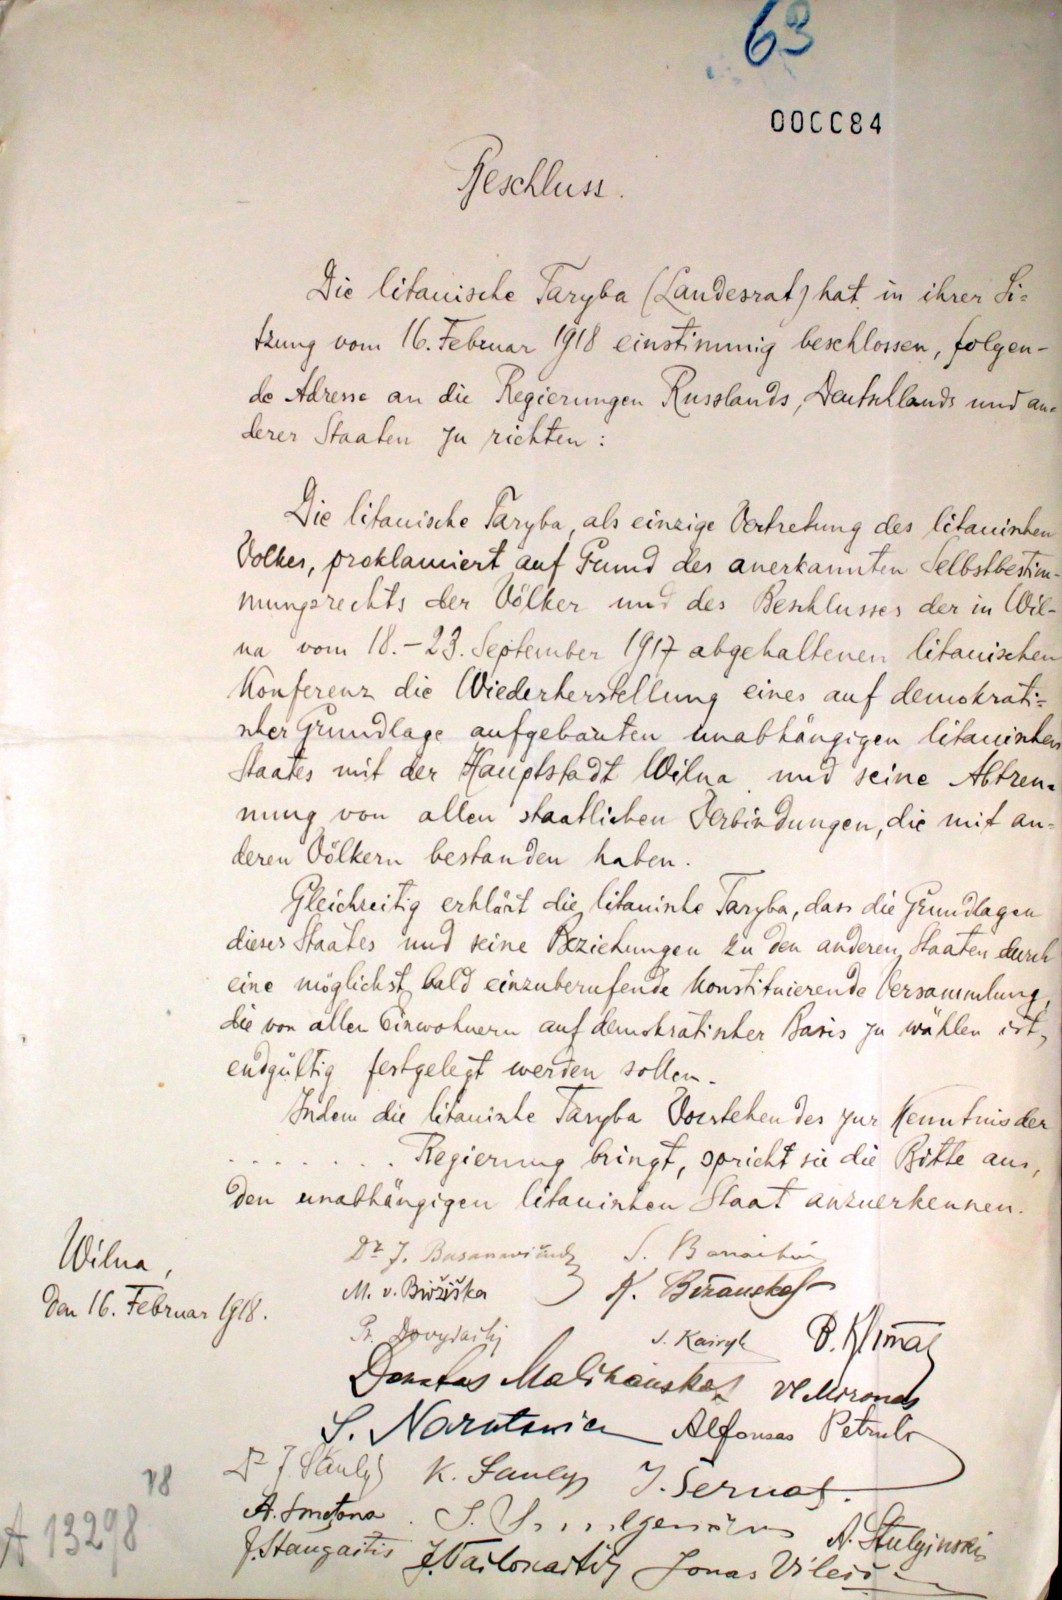 63
000084
Beschluss.
Die litauische Taryba (Landesrat) hat in ihrer Si=
tzung vom 16. Februar 1918 einstimmig beschlossen, folgen-
de Adresse an die Regierungen Russlands, Deutschlands und an=
derer Staaten zu richten:
Die litauische Taryba, als einzige Vertretung des litauischen
Volkes, proklamiert auf Grund des anerkannten Selbstbestim-
mungsrechts der Völker und des Beschlusses der in Wil-
na vom 18.-23. September 1917 abgehaltenen litauischen
Konferenz die Wiederherstellung eines auf demokrati=
scher Grundlage aufgebauten unabhängigen litauischen
Staates mit der Hauptstadt Wilna und seine Abtren=
nung von allen staatlichen Verbindungen, die mit an=
deren Völkern bestanden haben.
Gleichzeitig erklärt die litauische Taryba, dass die Grundlagen
dieses Staates und seine Beziehungen zu den anderen Staaten durch
eine möglichst bald einzuberufende konstituierende Versammlung,
die von allen Einwohnern auf demokratischer Basis zu wählen ist,
endgültig festgelegt werden sollen.
Indem die litauische Taryba Vorstehendes zur Kenntnis der
........ Regierung bringt, spricht sie die Bitte aus,
den unabhängigen litauischen Staat anzuerkennen.
Wilna,
den 16. Februar 1918.
Dr J. Basanavičius S. Banaitis
M. v. Biržiška K. Bizauskas
Pr. Dovydaitis S. Kairys P. Klimas
Donatas Malinauskas Vl Mironas
S. Narutowicz Alfonsas Petrulis
Dr J. Šaulys K. Šaulys J. Šernas.
A. Smetona. J. Smilgevičius A. Stulginskis
J. Staugaitis J. Vailokaitis Jonas Vileišis
A 13298
18